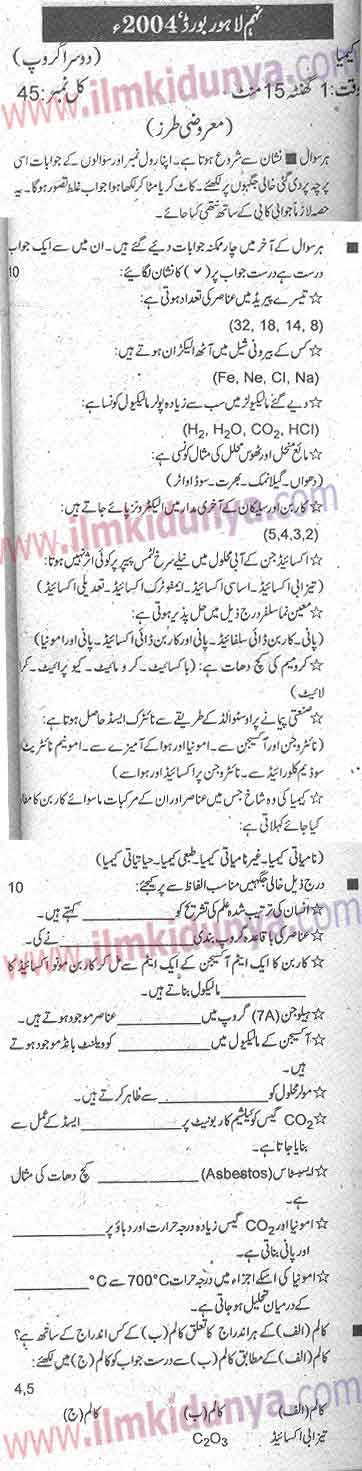 نہم لاہور بورڈ، 2004ء
کیمیا (دوسرا گروپ)
وقت: 1 گھنٹہ 15 منٹ کل نمبر: 45
(معروضی طرز)
ہر سوال ■ نشان سے شروع ہوتا ہے۔ اپنا رول نمبر اور سوالوں کے جوابات اسی
پرچہ پر دی گئی خالی جگہوں پر لکھئے۔ کاٹ کر یا مٹا کر لکھا ہوا جواب غلط تصور ہوگا۔ یہ
حصہ لازماً جوابی کاپی کے ساتھ نتھی کیا جائے۔
■ ہر سوال کے آخر میں چار ممکنہ جوابات دیئے گئے ہیں۔ ان میں سے ایک جواب
درست ہے درست جواب پر (✓) کا نشان لگائیے: 10
☆ تیسرے پیریڈ میں عناصر کی تعداد ہوتی ہے:
(32, 18, 14, 8)
☆ کس کے بیرونی شیل میں آٹھ الیکٹران ہوتے ہیں:
(Fe, Ne, Cl, Na)
☆ دیے گئے مالیکیولز میں سب سے زیادہ پولر مالیکیول کونسا ہے:
(H₂, H₂O, CO₂, HCl)
☆ مائع منحل اور ٹھوس محلل کی مثال کونسی ہے:
(دھواں۔ گیلا نمک۔ بھرت۔ سوڈا واٹر)
☆ کاربن اور سیلیکان کے آخری مدار میں الیکٹرونز پائے جاتے ہیں:
(5,4,3,2)
☆ آکسائیڈ جن کے آبی محلول میں نیلے سرخ لٹمس پیپر پر کوئی اثر نہیں ہوتا:
(تیزابی آکسائیڈ۔ اساسی آکسائیڈ۔ ایمفوٹرک آکسائیڈ۔ تعدیلی آکسائیڈ)
☆ معین نما سلفر درج ذیل میں حل پذیر ہوتی ہے:
(پانی۔ کاربن ڈائی سلفائیڈ۔ پانی اور کاربن ڈائی آکسائیڈ۔ پانی اور امونیا)
☆ کرومیم کی کچ دھات ہے: (باکسائیٹ۔ کرومائیٹ۔ کیوپرائیٹ۔
لائیٹ)
☆ صنعتی پیمانے پر اوسٹوالڈ کے طریقے سے نائٹرک ایسڈ حاصل ہوتا ہے:
(نائٹروجن اور آکسیجن سے۔ امونیا اور ہوا کے آمیزے سے۔ امونیم نائٹریٹ
سوڈیم کلورائیڈ سے۔ نائٹروجن پر آکسائیڈ اور ہوا سے)
☆ کیمیا کی وہ شاخ جس میں عناصر اور ان کے مرکبات ماسوائے کاربن کا
کیا جائے کہلاتی ہے:
(نامیاتی کیمیا۔ غیر نامیاتی کیمیا۔ طبعی کیمیا۔ حیاتیاتی کیمیا)
■ درج ذیل خالی جگہیں مناسب الفاظ سے پر کیجئے: 10
☆ انسان کی ترتیب شدہ علم کی تشریح کو ________ کہتے ہیں۔
☆ عناصر کی باقاعدہ گروپ بندی ________ نے کی۔
☆ کاربن کا ایک ایٹم آکسیجن کے ایک ایٹم سے مل کر کاربن مونو آکسائیڈ کا
________ مالیکول بناتے ہیں۔
☆ ہیلوجن (7A) گروپ میں ________ عناصر موجود ہوتے ہیں۔
☆ آکسیجن کے مالیکیول میں ________ کوویلنٹ بانڈ موجود ہوتے
ہیں۔
☆ مولر محلول کو ________ سے ظاہر کرتے ہیں۔
☆ CO₂ گیس کو کیلشیم کاربونیٹ پر ________ ایسڈ کے عمل سے
بنایا جاتا ہے۔
☆ ایسبسٹاس (Asbestos) ________ کچ دھات کی مثال
ہے۔
☆ امونیا اور CO₂ گیس زیادہ درجہ حرارت اور دباؤ پر ________
اور پانی بناتی ہے۔
☆ امونیا کی اسکے اجزاء میں درجہ حرارت 700°C سے ________ °C
کے درمیان تحلیل ہو جاتی ہے۔
■ کالم (الف) کے ہر اندراج کا تعلق کالم (ب) کے کس اندراج کے ساتھ ہے؟
کالم (الف) کے مطابق کالم (ب) سے درست جواب کو کالم (ج) میں لکھئے:
4,5
کالم (الف) کالم (ب) کالم (ج)
تیزابی آکسائیڈ C₂O₃
www.ilmkidunya.com
www.ilmkidunya.com
www.ilmkidunya.com
www.ilmkidunya.com